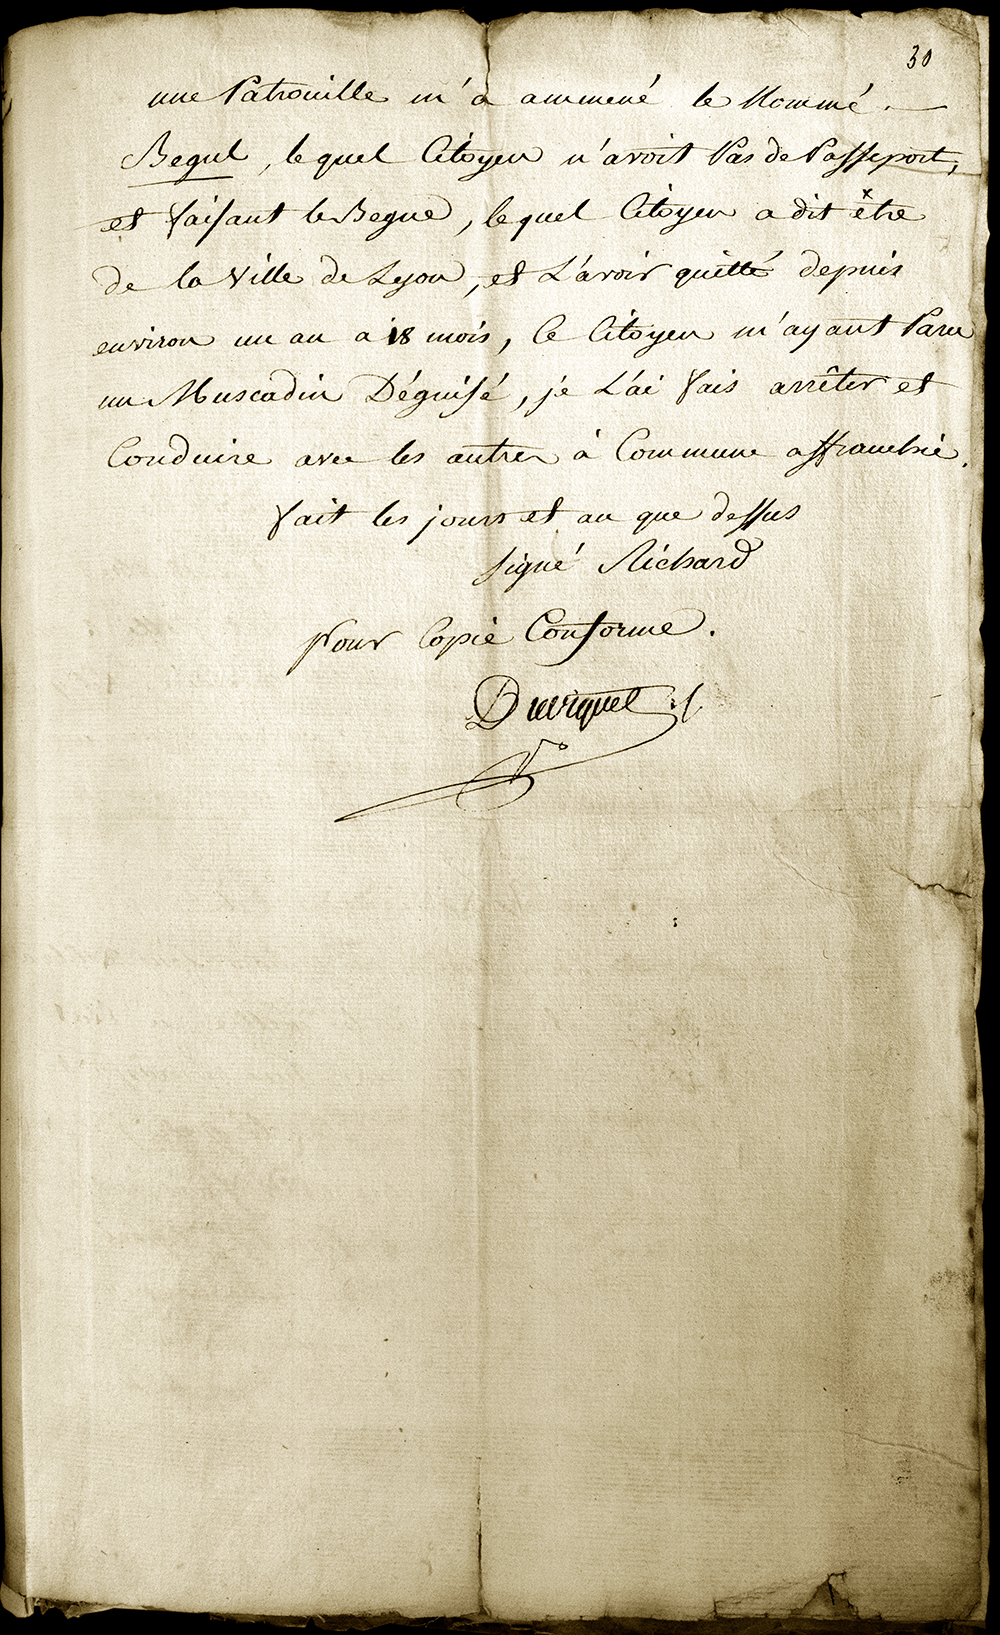 30
une Patrouille m'a ammené le Nommé. —
Begul, le quel Citoyen n'avoit Pas de Passeport,
et faisant le Begue, le quel Citoyen a dit être
de la Ville de Lyon, et L'avoir quitté depuis
environ un an a 18 mois, Ce Citoyen m'ayant Paru
un Muscadin Déguisé, je L'ai fais arrêter et
Conduire avec les autres à Commune affranchie.
fait les jours et an que dessus
signé Richard
Pour Copie Conforme.
Duviquet